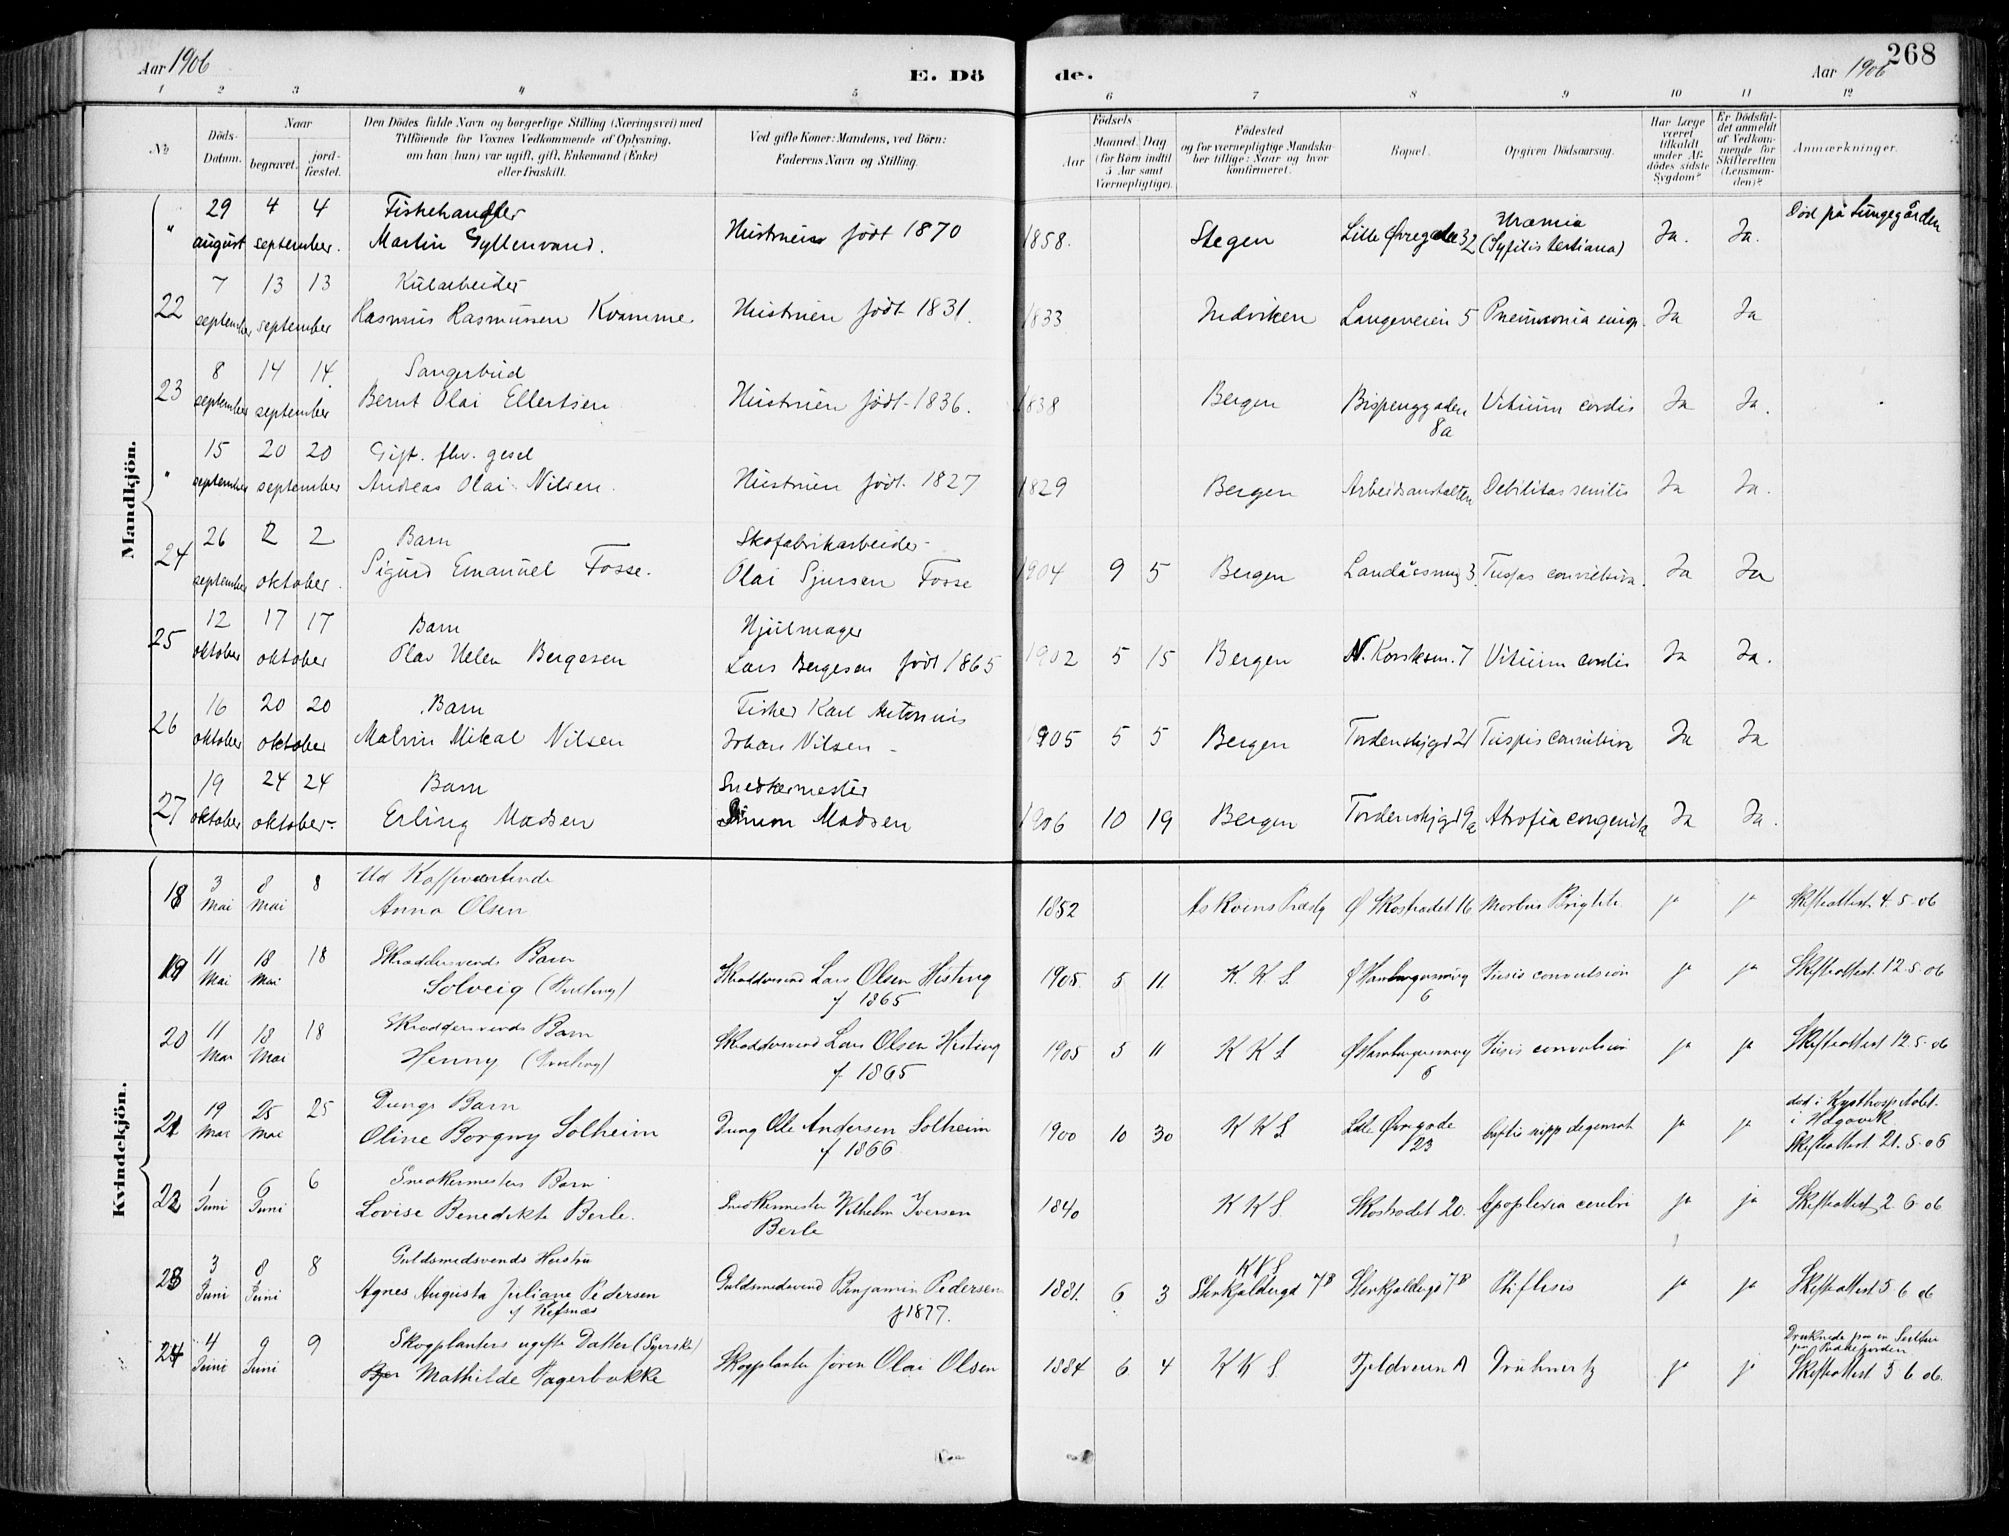 Aar 1906
E. Dö
de.
268
Aar 1906
1 2 3 4 5 6 7 8 9 10 11 12
No
Döds-Datum.
Naar
begravet.
jord-fæstet.
Den Dödes fulde Navn og borgerlige Stilling (Næringsvei) med
Tilföiende for Voxnes Vedkommende af Oplysning,
om han (hun) var ugift, gift, Enkemand (Enke)
eller fraskilt.
Ved gifte Koner: Mandens, ved Börn:
Faderens Navn og Stilling.
Födsels
Aar
Maaned (for Börn indtil 5 Aar samt Værnepligtige).
Dag
Födested
og for værnepligtige Mandskaber tillige: Naar og hvor
konfirmeret.
Bopæl.
Opgiven Dödsaarsag.
Har Læge været tilkaldt under Afdödes sidste Sygdom?
Er Dödsfaldet anmeldt af Vedkommende for Skifteretten (Lensmanden)?
Anmærkninger.
Mandkjön.
" 29 august 4 september 4 Fiskehandler Martin Gyllenvand. Hustruen født 1870 1858. Stegen Lille Øvregade 32 Uræmia (Syfilis tertiana) Ja. Ja. Død på Lungegården
22 7 september 13 september 13 Kularbeider Rasmus Rasmussen Kvamme Hustruen født 1831. 1833 Indviken Langeveien 5 Pneumonia Ja Ja
23 8 september 14 september 14 Sangerbud Bernt Olai Ellertsen Hustruen født 1836. 1838 Bergen Bispenggaden 8a Vitium cordis Ja Ja.
" 15 september 20 september 20 Gift. fhv. gesel Andreas Olai Nilsen. Hustruen født 1827 1829 Bergen Arbeidsanstalten Debilitas senilis Ja Ja.
24 26 september 2 oktober. 2 Barn Sigurd Emanuel Fosse. Skofabrikarbeider Olai Sjursen Fosse 1904 9 5 Bergen Landåssmug 3. Tussis convulsiva. Ja Ja
25 12 oktober 17 oktober 17 Barn Olav Helen Bergesen Hjulmager Lars Bergesen født 1865 1902 5 15 Bergen N. Korsksm. 7 Vitium cordis Ja Ja.
26 16 oktober 20 oktober 20 Barn Malvin Mikal Nilsen Fisker Karl Antonius Johan Nilsen 1905 5 5 Bergen Tordenskjgd 21 Tussis convulsiva Ja Ja
27 19 oktober 24 oktober 24 Barn Erling Madsen Snedkermester Simon Madsen 1906 10 19 Bergen Tordenskjgd 9a Atrofia congenita Ja Ja.
Kvindekjön.
18 3 Mai 8 Mai 8 Ud Kaffevertinde Anna Olsen 1852 Askvins Præstg Ø Skostrædet 16 Morbus Brightii ja ja Skifteattest 4.5.06
19 11 Mai 18 Mai 18 Skræddersvends Barn Solveig (Tvilling) Skræddersvend Lars Olsen Histing f 1865 1905. 5 11. K. K. S. Ø Hamburgersmug 6 Tussis convulsiva ja ja Skifteattest 12.5.06
20 11 Mai 18 Mai 18 Skræddersvends Barn Henny (Tvilling) Skræddersvend Lars Olsen Histing f. 1865 1905 5 11 K K S Ø Hamburgersmug 6 Tussis convulsiva ja ja Skifteattest 12.5.06
21 19 Mai 25 Mai 25 Oline Borgny Solheim Ole Andersen Solheim f 1866 1900 10 30 K K S Lille Øvregade 23 ja ja død i Kysthospitalet i Hagavik Skifteattest 21.5.06
22 1 Juni 6 Juni 6 Snedkermesters Barn Lovise Benedikte Berle. Snedkermester Vilhelm Iversen Berle 1840 K K S. Skostrædet 20. Apoplexia cerebri ja ja Skifteattest 2.6.06
23 3 Juni 8 Juni 8 Guldsmedsvends Hustru Agnes Augusta Juliane Pedersen f Refsnæs Guldsmedsvend Benjamin Pedersen f 1877. 1881. 6 3 K K S Stenkjeldergd 7B Stenkjeldergd 7B Ptiflisis ja ja Skifteattest 5.6.06
24 4 Juni 9 Juni 9 Skogplanters ugifte Datter (Syerske) Mathilde Fagerbakke Skogplanter Jøren Olai Olsen 1884 6 4 K K S Fjeldveien A Druknet ja ja Druknede paa en Seiltur paa Puddefjorden Skifteattest 5.6.06.